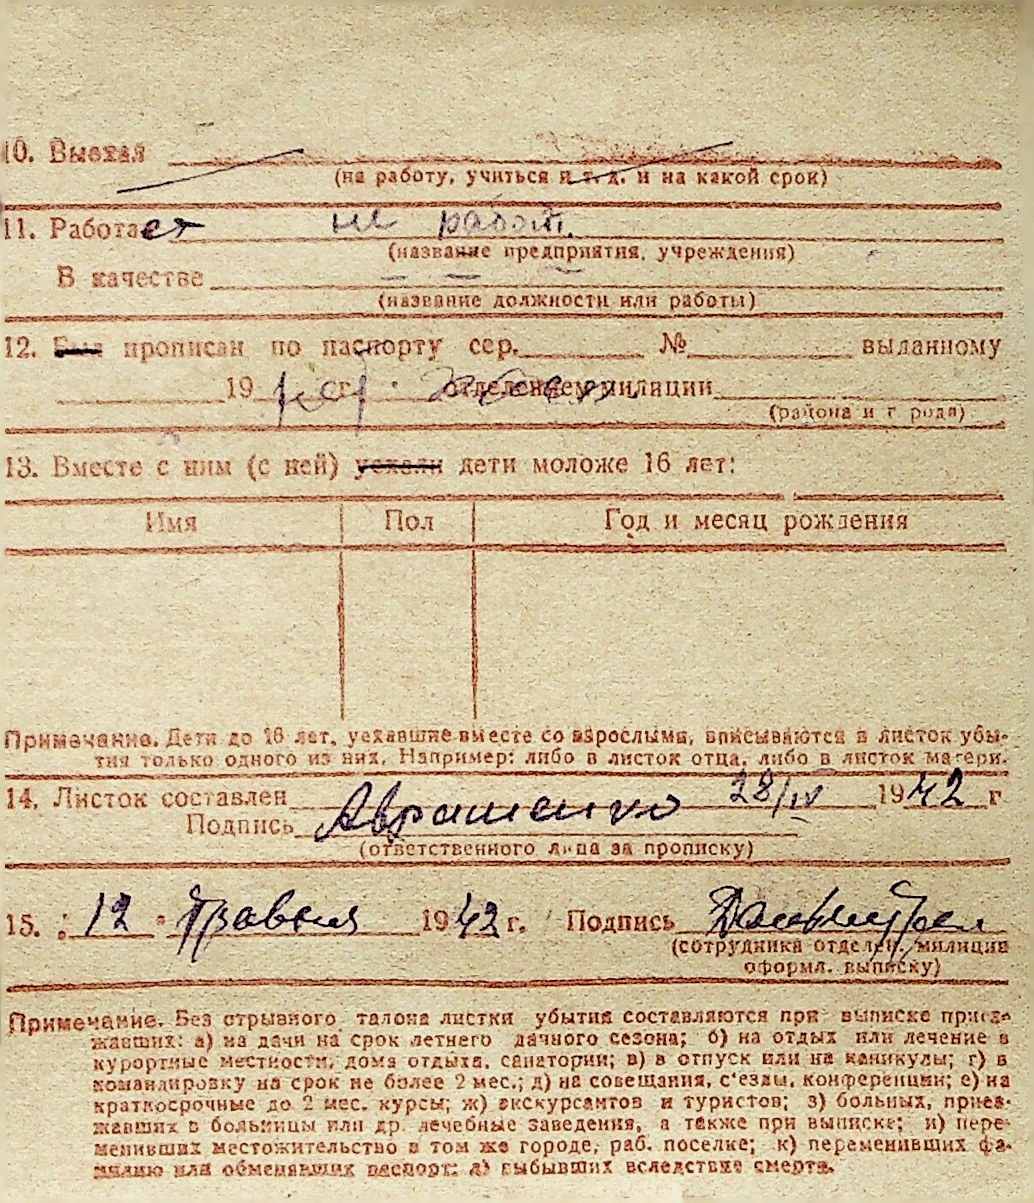 10. Выехал
(на работу, учиться и т. д. и на какой срок)
11. Работает не работ.
(название предприятия, учреждения)
В качестве — — —
(название должности или работы)
12. Был прописан по паспорту сер. № выданному
19 г. отделением милиции
(района и г рода)
13. Вместе с ним (с ней) уехали дети моложе 16 лет:
Имя Пол Год и месяц рождения
Примечание. Дети до 16 лет, уехавшие вместе со взрослыми, вписываются в листок убы-
тия только одного из них. Например: либо в листок отца, либо в листок матери.
14. Листок составлен 28/IV 1942 г
Подпись Аврашенко
(ответственного лица за прописку)
15. "12" Травня 1942 г. Подпись
(сотрудника отделен. милиции
оформл. выписку)
Примечание. Без отрывного талона листки убытия составляются при выписке приез-
жавших: а) на дачи на срок летнего дачного сезона; б) на отдых или лечение в
курортные местности, дома отдыха, санатории; в) в отпуск или на каникулы; г) в
командировку на срок не более 2 мес.; д) на совещания, с'езды, конференции; е) на
краткосрочные до 2 мес. курсы; ж) экскурсантов и туристов; з) больных, приез-
жавших в больницы или др. лечебные заведения, а также при выписке; и) пере-
менивших местожительство в том же городе, раб. поселке; к) переменивших фа-
милию или обменявших паспорт; л) выбывших вследствие смерти.